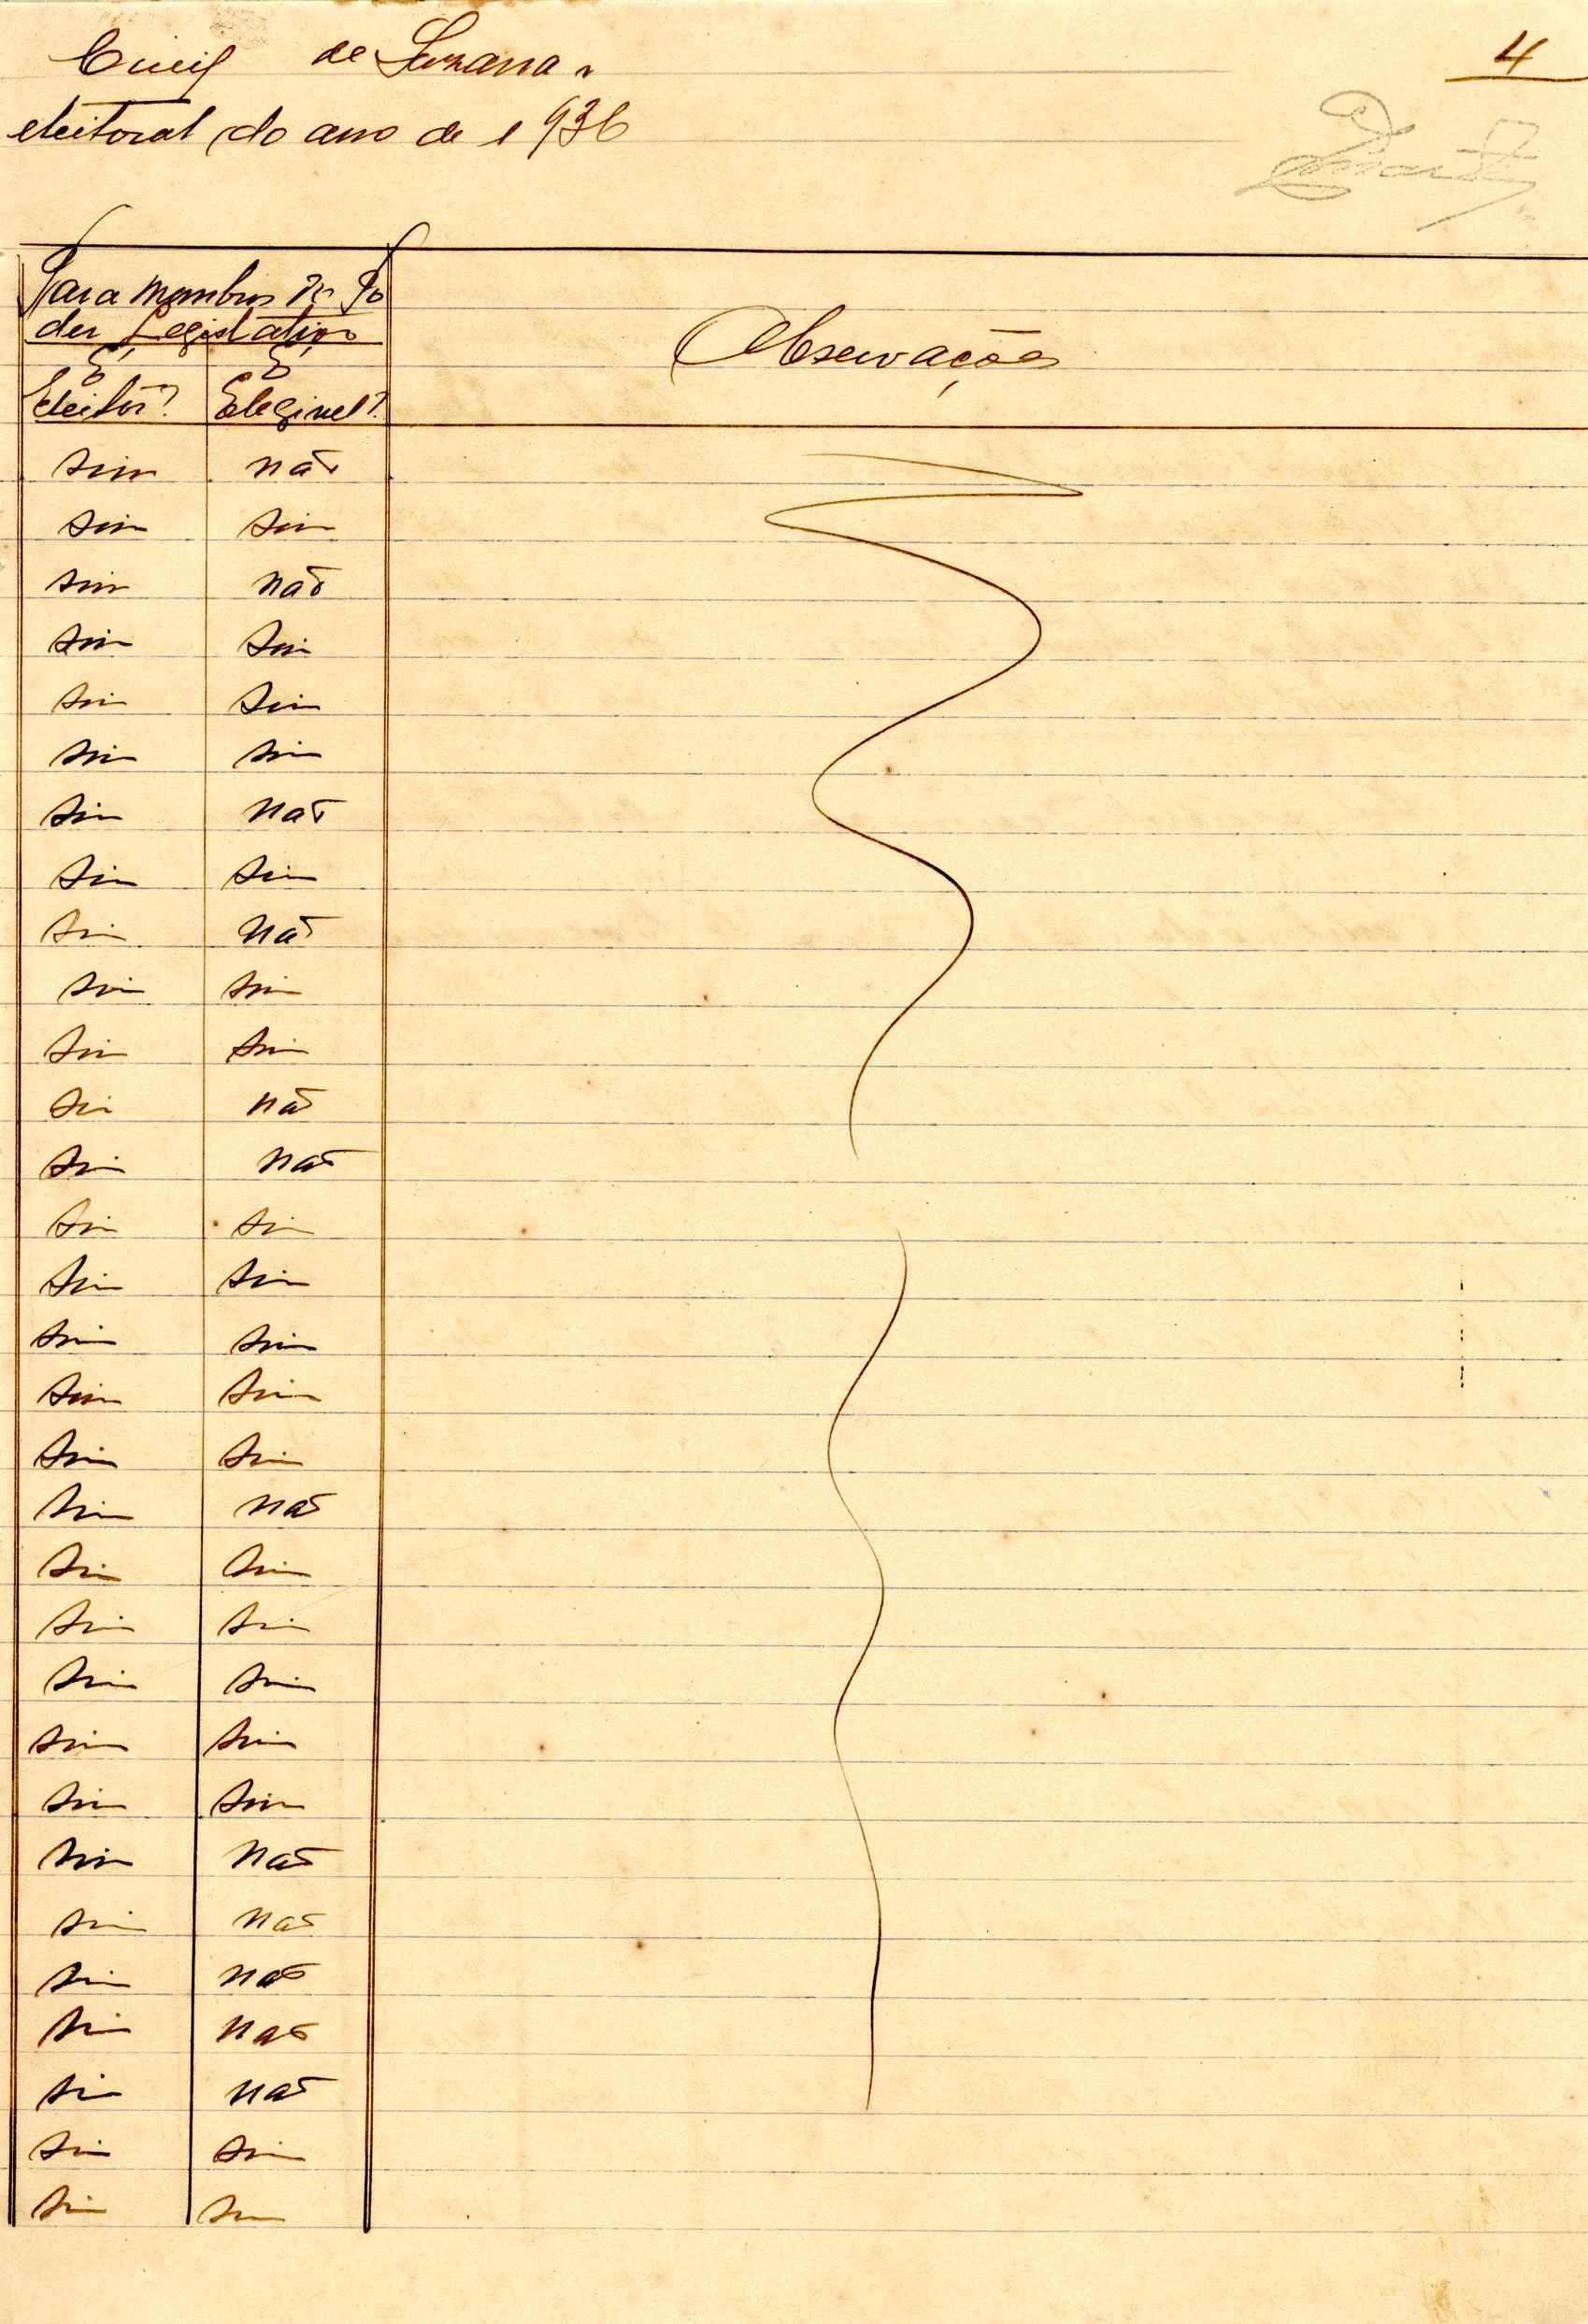 4
de Suzana
eleitoral do ano de 1936
Para membros do Po
der Legislativo
É É
Eleitor? Elegivel?
Observações
sim não
sim sim
sim não
sim sim
sim sim
sim sim
sim não
sim sim
sim não
sim sim
sim sim
sim não
sim não
sim sim
sim sim
sim sim
sim sim
sim sim
sim não
sim sim
sim sim
sim sim
sim sim
sim sim
sim não
sim não
sim não
sim não
sim não
sim sim
sim sim